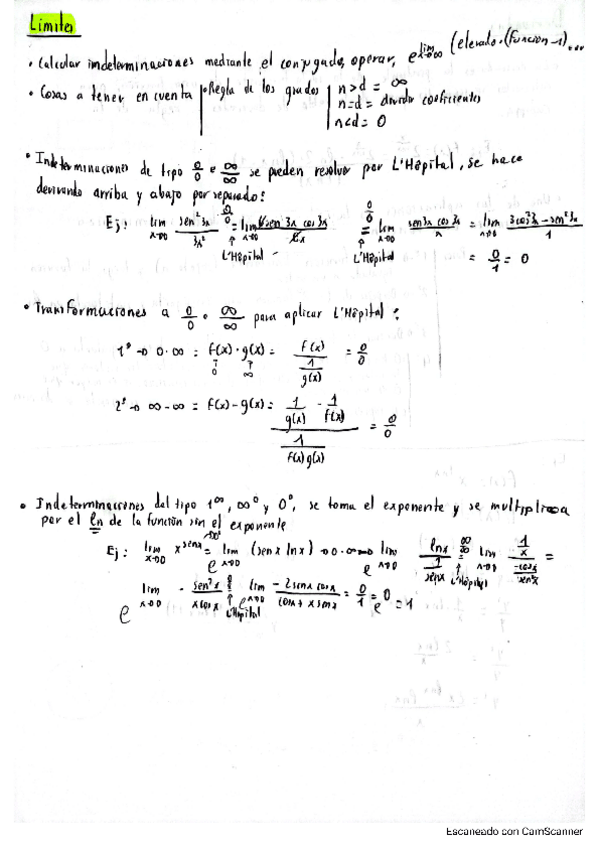 Límites
• Calcular indeterminaciones mediante el conjugado, operar, e^lim x→∞ (elevado · (función - 1)
• Cosas a tener en cuenta | • Regla de los grados | n > d = ∞
n = d = dividir coeficientes
n < d = 0
• Indeterminaciones de tipo 0/0 o ∞/∞ se pueden resolver por L'Hôpital, se hace
derivando arriba y abajo por separado:
Ej: lim x→0 sen² 3x / 3x² = 0/0 = lim x→0 6 sen 3x cos 3x / 6x = 0/0 = lim x→0 sen 3x cos 3x / x = lim x→0 3cos² 3x - sen² 3x / 1
L'Hôpital L'Hôpital = 0/1 = 0
• Transformaciones a 0/0 o ∞/∞ para aplicar L'Hôpital:
1º → 0·∞ = f(x)·g(x) = f(x) / 1/g(x) = 0/0
0 ∞
2º → ∞-∞ = f(x) - g(x) = 1/g(x) - 1/f(x) / 1/f(x)g(x) = 0/0
• Indeterminaciones del tipo 1^∞, ∞^0 y 0^0, se toma el exponente y se multiplica
por el ln de la función sin el exponente
Ej: lim x→0 x^senx = e^lim x→0 (sen x ln x) → 0·∞ → e^lim x→0 ln x / 1/senx = ∞/∞ L'Hôpital = lim x→0 1/x / -cosx/sen²x =
e^lim x→0 - sen² x / x cos x = 0/0 L'Hôpital = e^lim x→0 -2senx cosx / cosx + x senx = 0/1 = e^0 = 1
Escaneado con CamScanner